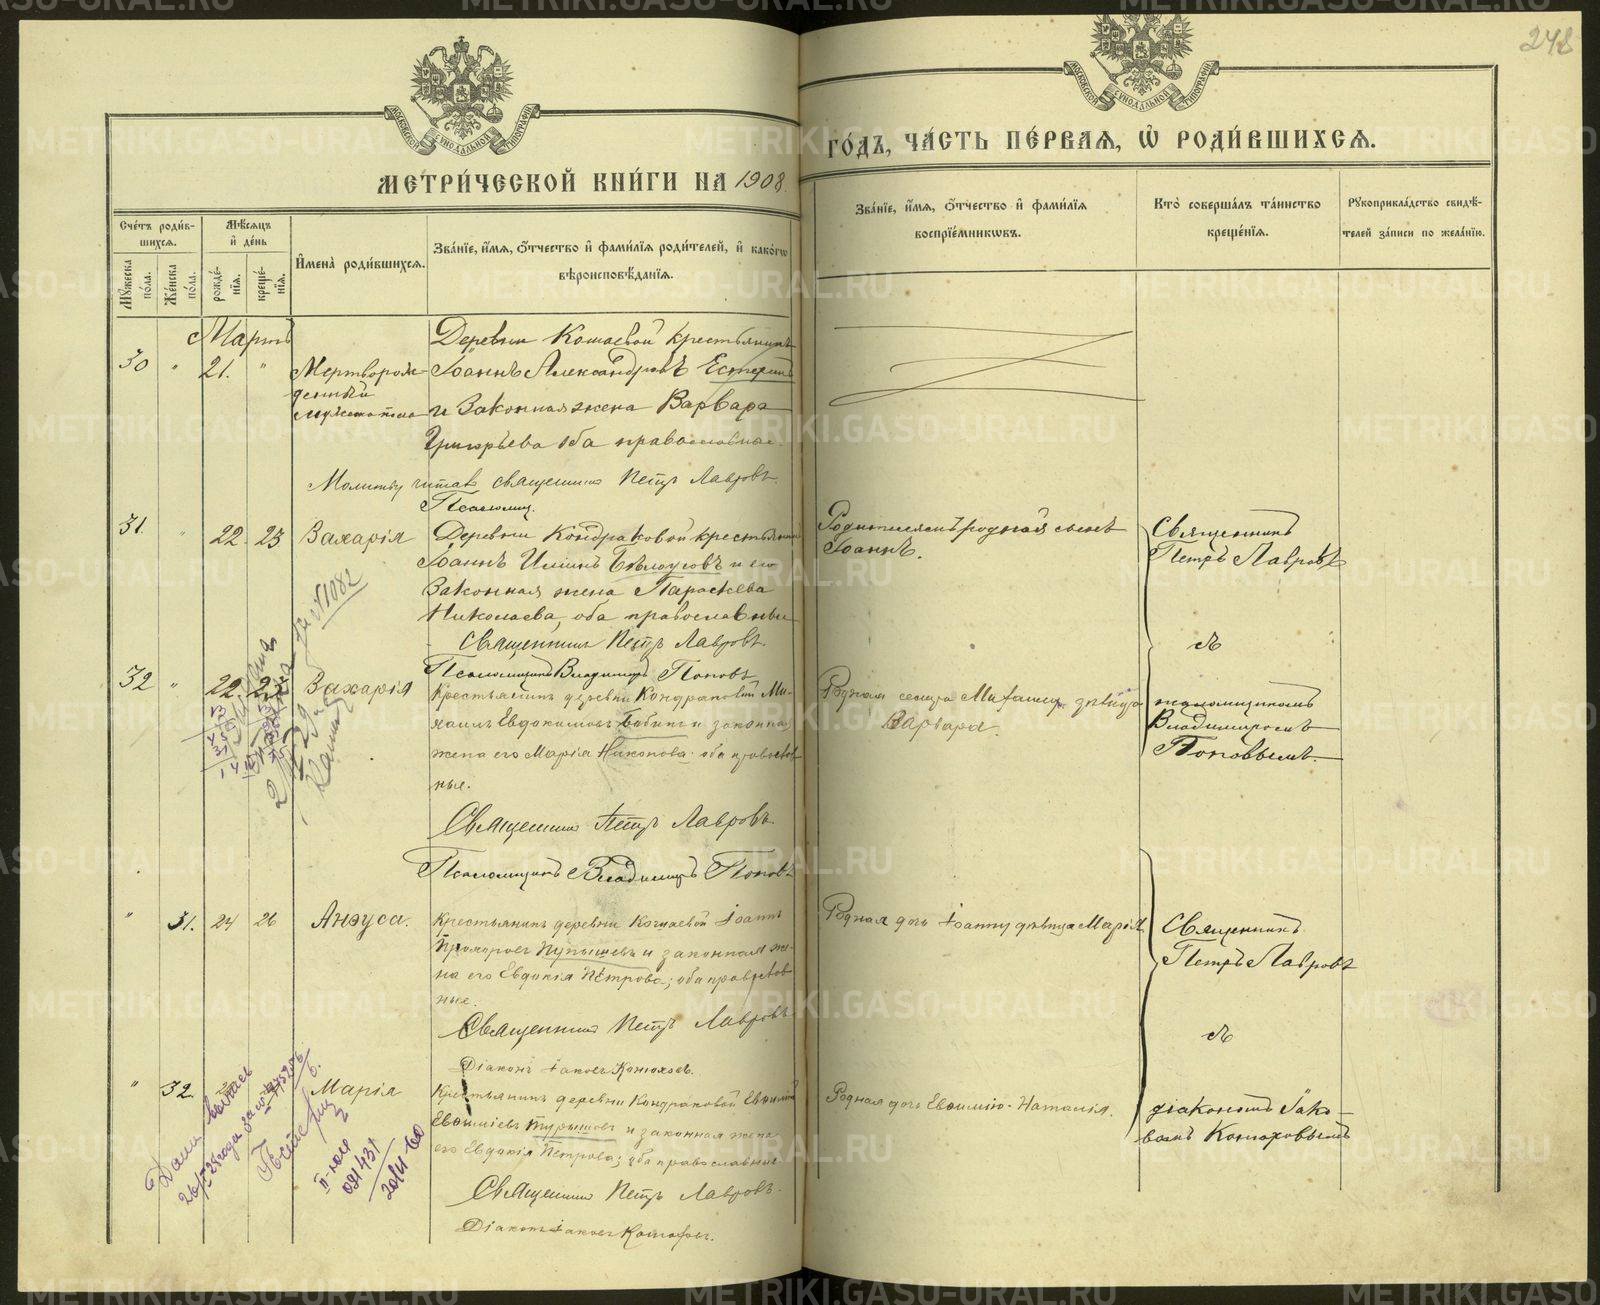 248
МЕТРИ́ЧЕСКОЙ КНИ́ГИ НА 1908
ГО́ДЪ, ЧА́СТЬ ПЕ́РВАЯ, Ѡ҆ РОДИ́ВШИХСЯ.
МОСКОВСКОЙ СѴНОДАЛЬНОЙ ТИПОГРАФІИ
МОСКОВСКОЙ СѴНОДАЛЬНОЙ ТИПОГРАФІИ
Сче́тъ роди́вшихся.
Мꙋ́жеска по́ла.
Же́нска по́ла.
Мѣ́сяцъ и҆ де́нь
рожде́нїя.
креще́нїя.
И҆мена̀ роди́вшихся.
Зва́нїе, и҆́мя, ѻ҆́тчество и҆ фами́лїя роди́телей, и҆ како́гѡ
вѣроисповѣ́данїя.
Зва́нїе, и҆́мя, ѻ҆́тчество и҆ фами́лїя
воспрїе́мникѡвъ.
Кто̀ соверша́лъ та́инство
креще́нїя.
Рꙋкоприкла́дство свидѣ́-
телей за́писи по жела́нїю.
Мартъ
30 " 21. "
Мертворож-
денный
мужска пола
Деревни Кошаевой крестьянинъ
Іоаннъ Александровъ
и законная жена Варвара
Григорьева оба православные.
Молитву читалъ священникъ Петръ Лавровъ.
Псаломщ.
31. " 22. 23 Захарія
Деревни Кондраковой крестьянинъ
Іоаннъ Илiинъ Бѣлоусовъ и его
законная жена Параскева
Николаева, оба православны
Священникъ Петръ Лавровъ.
Псаломщикъ Владимiръ Поповъ
Родителямъ родной сынъ
Іоаннъ.
Священникъ
Петръ Лавровъ
съ
псаломщикомъ
Владимiромъ
Поповымъ.
32 " 22. 23 Захарія
Крестьянинъ деревни Кондраковой Ми-
хаилъ Евдокимовъ Бабинъ и законная
жена его Марія Никонова. оба православ-
ные.
Священникъ Петръ Лавровъ.
Псаломщикъ Владимiръ Поповъ
Родная сестра Михаилу дѣвица
Варвара.
№ 1082
" 31. 24 26 Анѳуса.
Крестьянинъ деревни Кошаевой Іоаннъ
Прохоровъ Пупышевъ и законная же-
на его Евдокія Петрова; оба православ
ные.
Священникъ Петръ Лавровъ
Діаконъ Іаковъ Конюховъ.
Родная дочь Іоанну дѣвица Марія.
Священникъ
Петръ Лавровъ
съ
діакономъ Іако-
вомъ Конюховымъ
" 32. Марія
Крестьянинъ деревни Кондраковой Евѳимій
Евѳиміевъ Турышевъ и законная жена
его Евдокія Петрова; оба православные.
Священникъ Петръ Лавровъ.
Діаконъ Іаковъ Конюховъ.
Родная дочь Евѳимію Наталія.
II-ЮЛ
091431
METRIKI.GASO-URAL.RU